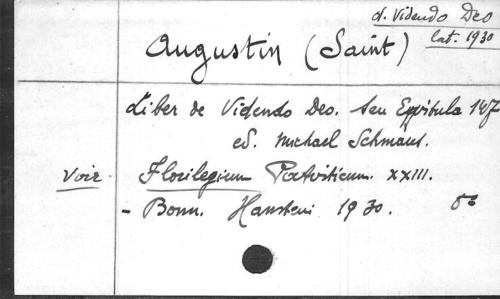 d. Videndo Deo
lat. 1930
Augustin (Saint)
Liber de Videndo Deo. Seu Epistula 147
ed. Michael Schmaus.
Voir Florilegium Patristicum. XXIII.
- Bonn. Hanstein 1930. 8º